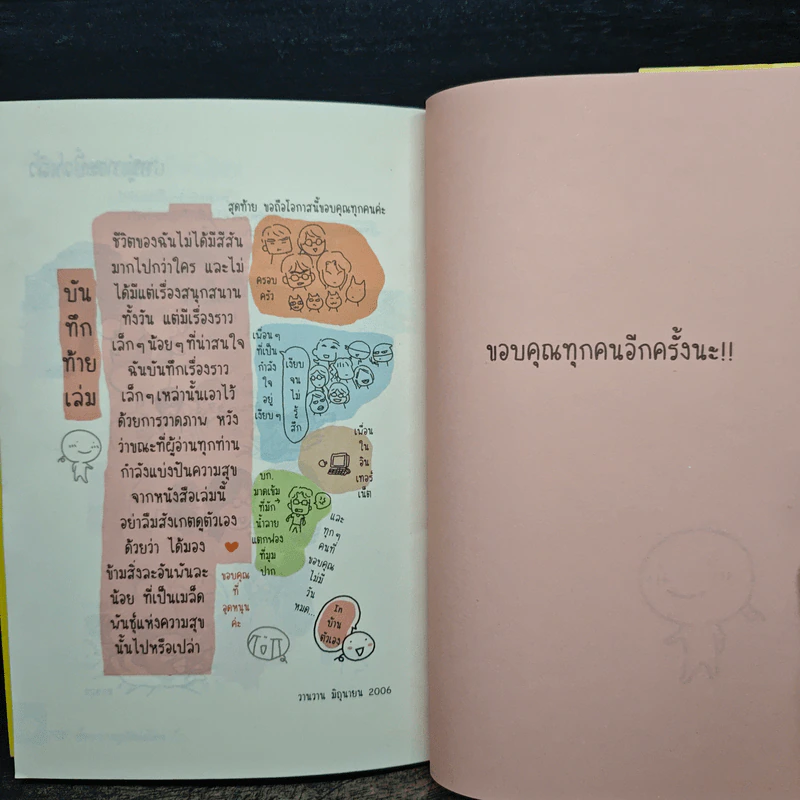 สุดท้าย ขอถือโอกาสนี้ขอบคุณทุกคนค่ะ
บัน
ทึก
ท้าย
เล่ม
ชีวิตของฉันไม่ได้มีสีสัน
มากไปกว่าใคร และไม่
ได้มีแต่เรื่องสนุกสนาน
ทั้งวัน แต่มีเรื่องราว
เล็กๆ น้อยๆ ที่น่าสนใจ
ฉันบันทึกเรื่องราว
เล็กๆ เหล่านั้นเอาไว้
ด้วยการวาดภาพ หวัง
ว่าขณะที่ผู้อ่านทุกท่าน
กำลังแบ่งปันความสุข
จากหนังสือเล่มนี้
อย่าลืมสังเกตดูตัวเอง
ด้วยว่า ได้มอง
ข้ามสิ่งละอันพันละ
น้อย ที่เป็นเมล็ด
พันธุ์แห่งความสุข
นั้นไปหรือเปล่า
ครอบ
ครัว
เพื่อนๆ
ที่เป็น
กำลัง
ใจ
อยู่
เงียบๆ
เงียบ
จน
ไม่
รู้
สึก
เพื่อน
ใน
อิน
เทอร์
เน็ต
บก.
มาดเข้ม
ที่มัก
น้ำลาย
แตกฟอง
ที่มุม
ปาก
และ
ทุกๆ
คนที่
ขอบคุณ
ไม่มี
วัน
หมด...
ขอบคุณ
ที่
อุดหนุน
ค่ะ
บ้าน
ตัวเอง
วานวาน มิถุนายน 2006
ขอบคุณทุกคนอีกครั้งนะ!!